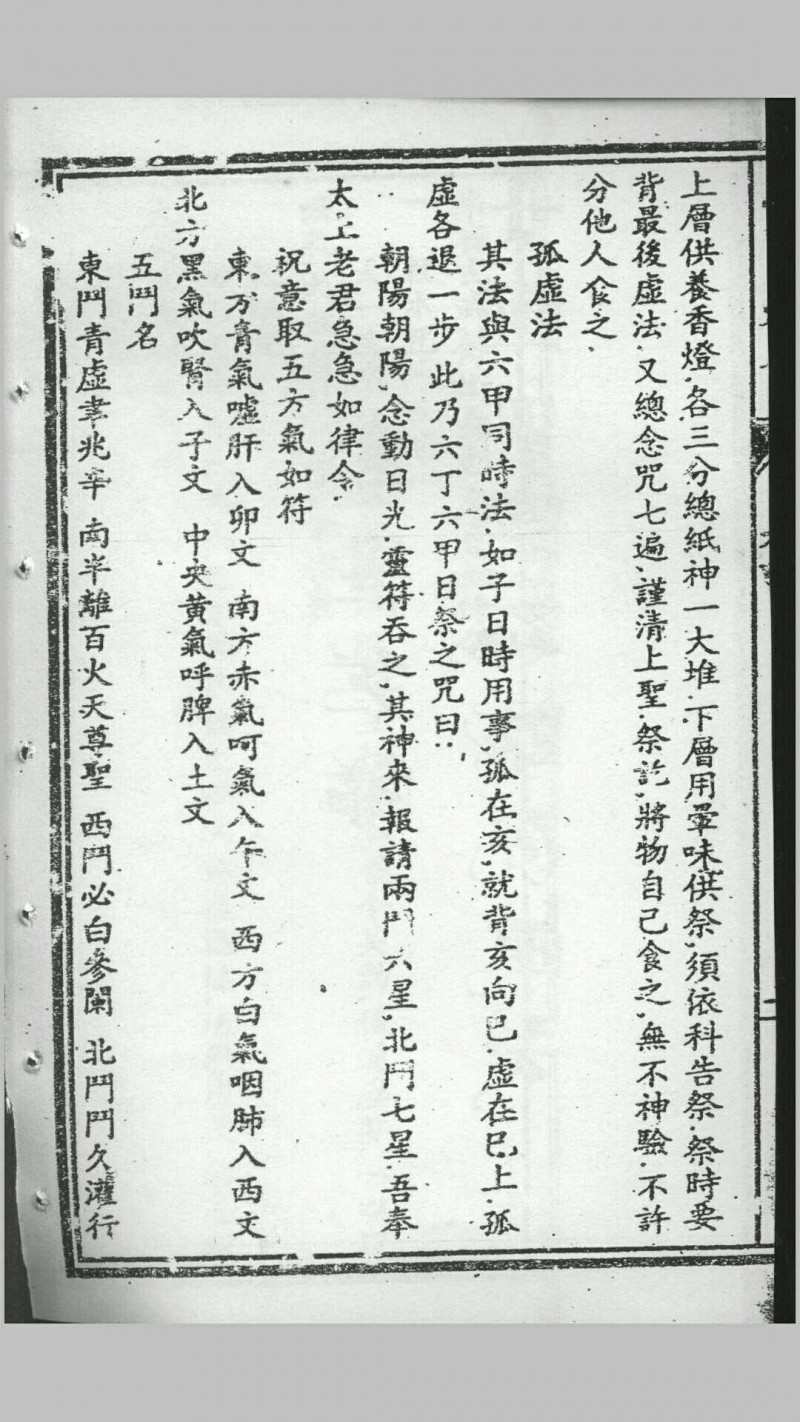 上層供養香燈．各三分總紙神一大堆．下層用葷味供祭．須依科告祭．祭時要
背最後虛法．又總念咒七遍．謹清上聖．祭訖．將物自己食之．無不神驗．不許
分他人食之．
孤虛法
其法與六甲同時法．如子日時用事．孤在亥．就背亥向巳．虛在巳上．孤
虛各退一步．此乃六丁六甲日祭之咒曰：
朝陽朝陽．念動日光．靈符吞之．其神來．報請兩鬥六星．北鬥七星．吾奉
太上老君急急如律令．
祝意取五方氣如符
東方青氣噓肝入卯文　南方赤氣呵氣入午文　西方白氣咽肺入西文
北方黑氣吹腎入子文　中央黃氣呼脾入土文
五鬥名
東鬥青虛聿兆辛　南半離百火天尊聖　西鬥必白參闌　北鬥鬥久灌行